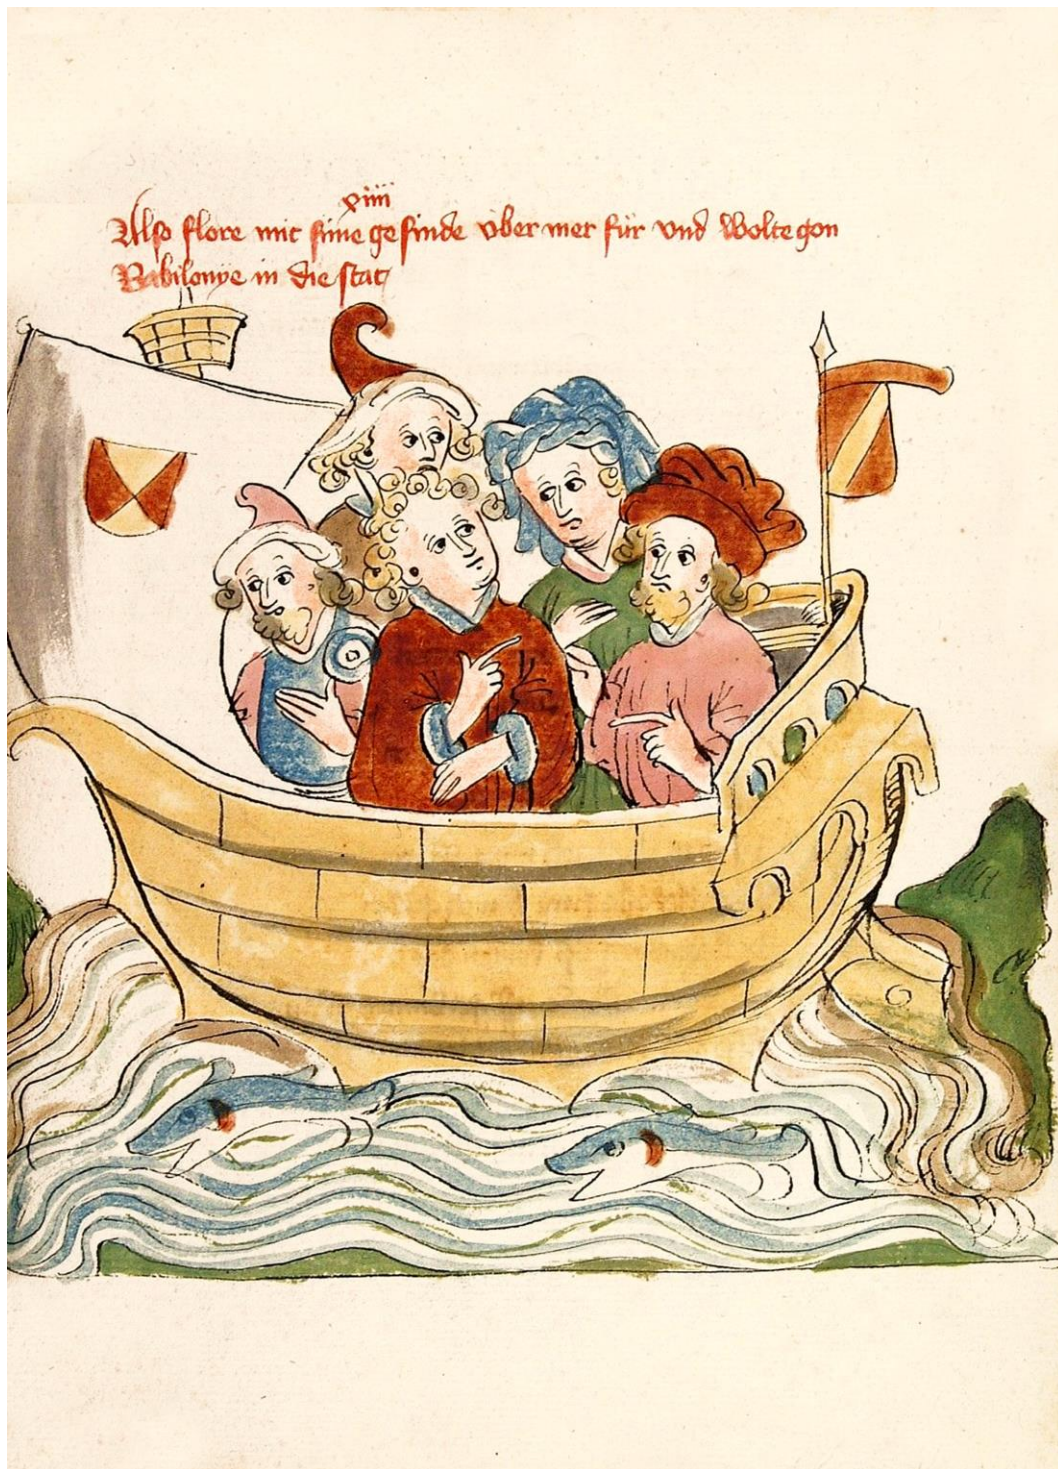 xiiii
Also flore mit sime gesinde über mer für und wolte gon
Babilonye in die stat